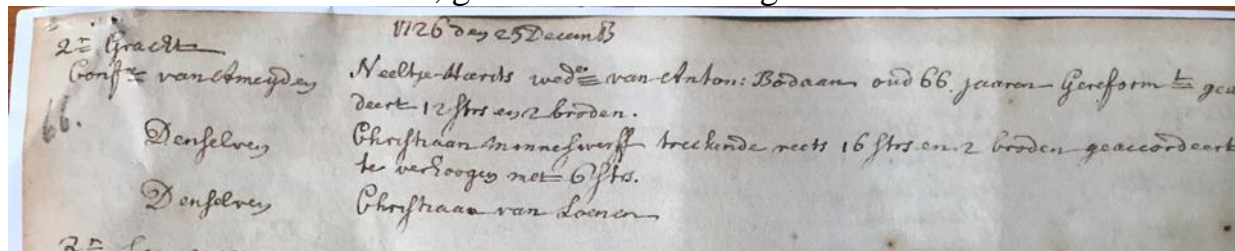 1726 den 25 Decemb
2e Gracht
Confr van Ameyden Neeltje Haerts wede van Anton: Bodaan oud 66. jaaren Gereformt geac
deert 12 strs en 2 broden.
66.
Denselven Christiaan Minneswerff treckende reets 16 strs en 2 broden geaccordeert
te verhoogen met 6 strs.
Denselven Christiaan van Loenen